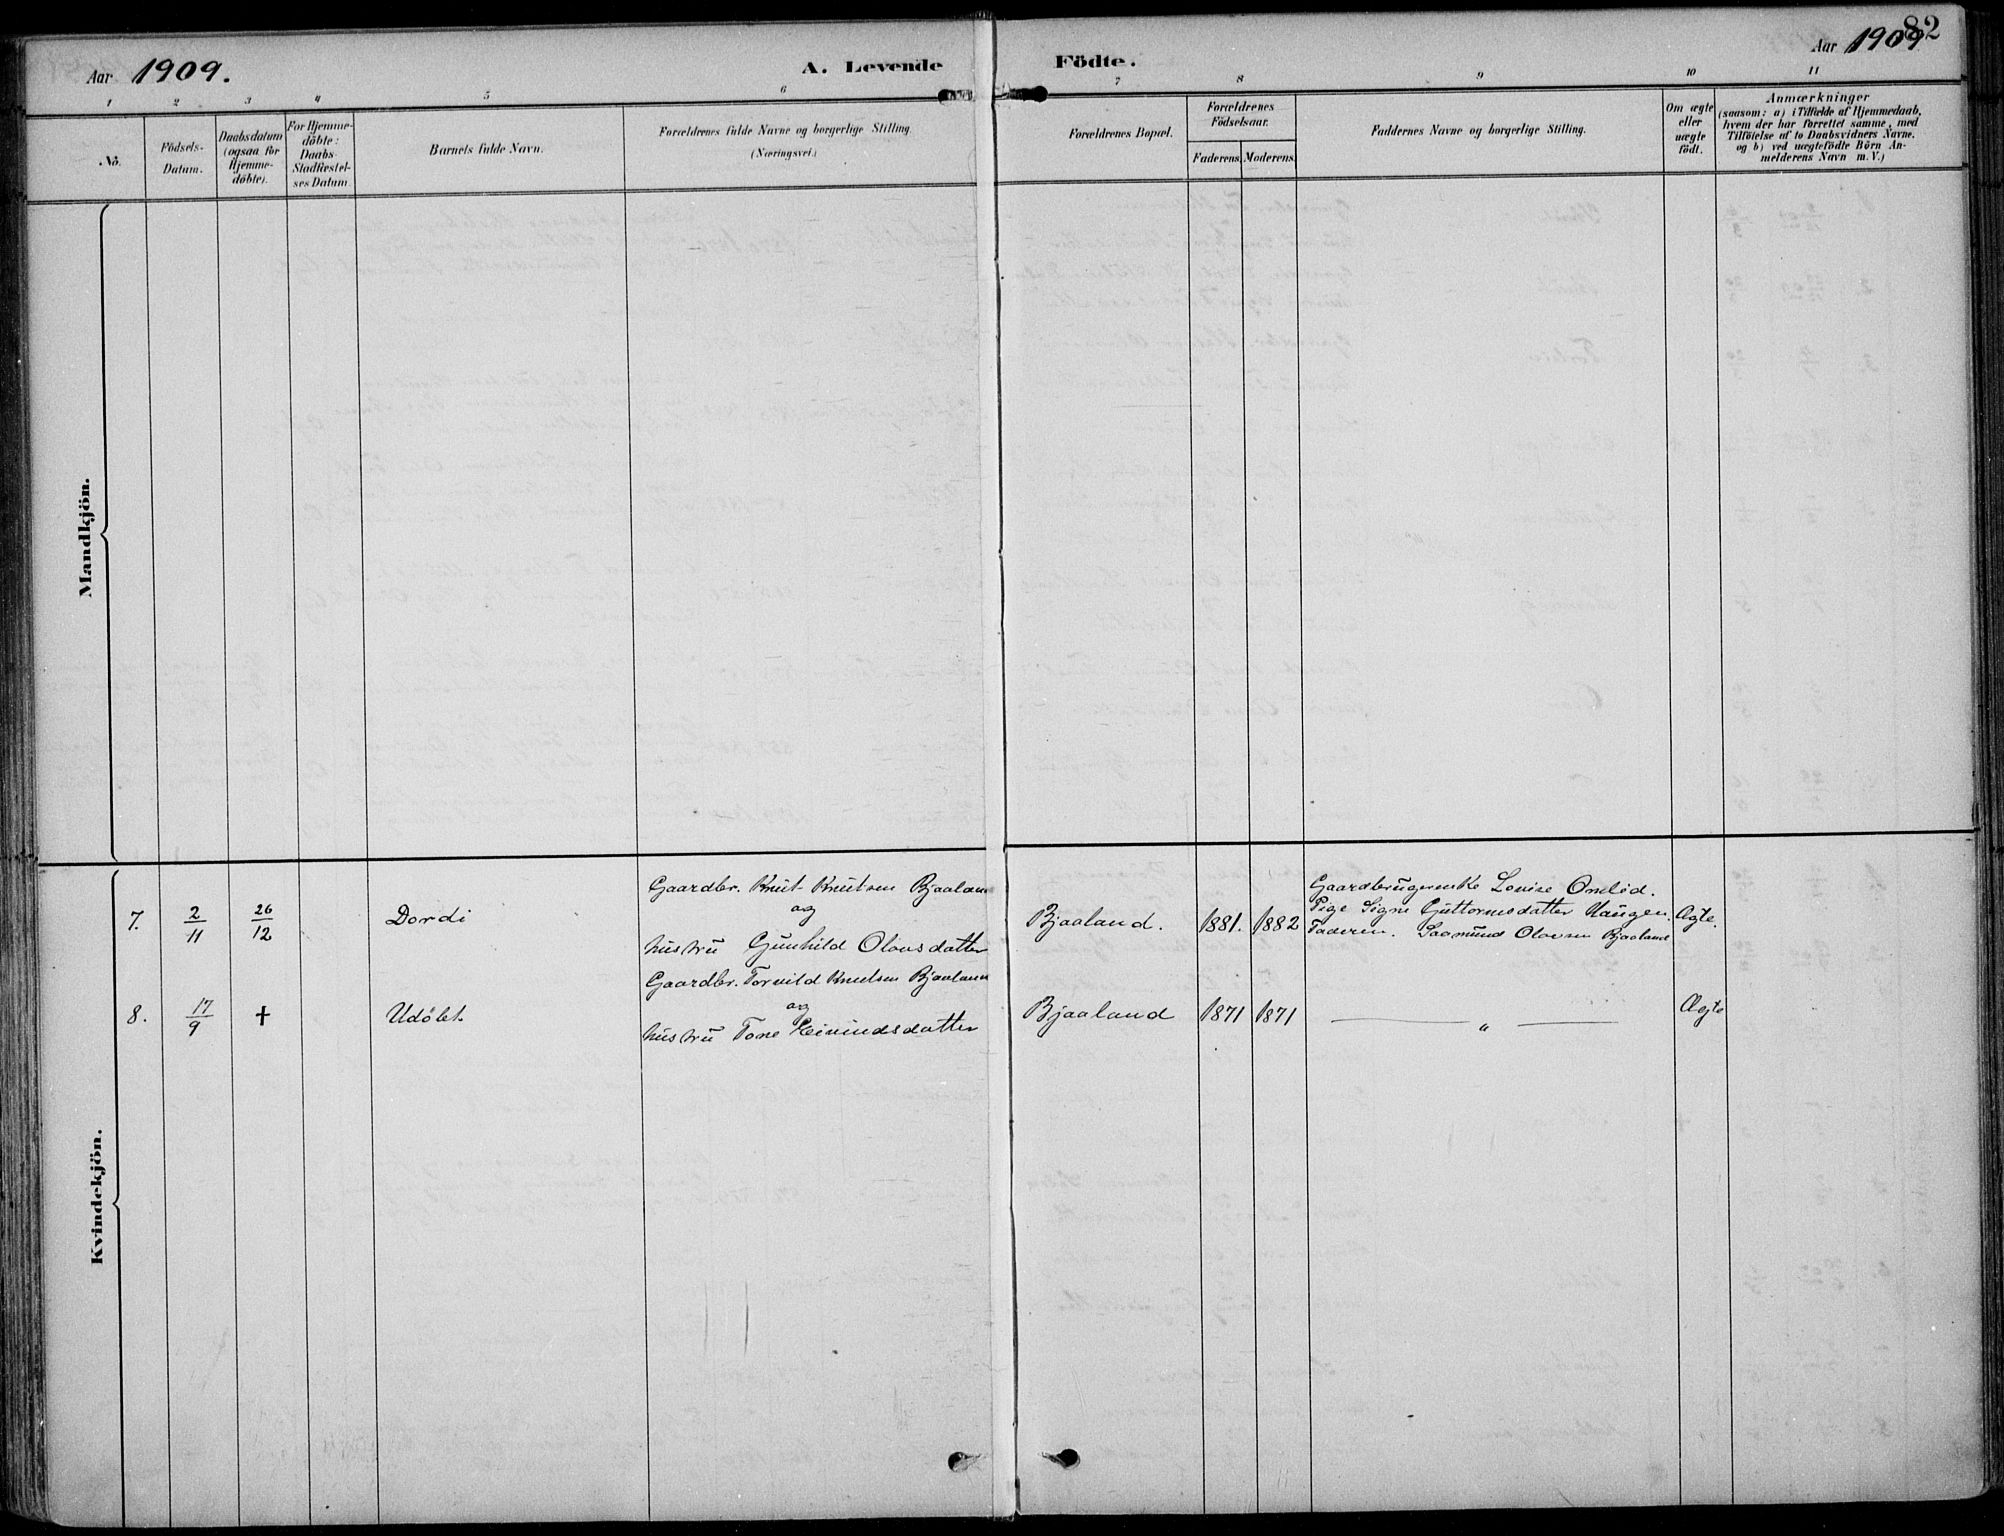 82
Aar 1909.
A. Levende Födte.
Aar 1909
1 2 3 4 5 6 7 8 9 10 11
No.
Födsels-
Datum.
Daabsdatum
(ogsaa for
Hjemme-
döbte).
For Hjemme-
döbte:
Daabs-
Stadfæstel-
ses Datum.
Barnets fulde Navn.
Forældrenes fulde Navne og borgerlige Stilling.
(Næringsvei.)
Forældrenes Bopæl.
Forældrenes
Födselsaar.
Faderens. Moderens.
Faddernes Navne og borgerlige Stilling.
Om ægte
eller
uægte
födt.
Anmærkninger
(saasom: a) i Tilfælde af Hjemmedaab,
hvem der har forrettet samme, med
Tilföielse af to Daabsvidners Navne,
og b) ved uægtefödte Börn An-
melderens Navn m. V.)
Mandkjön.
Kvindekjön.
7. 2/11 26/12 Dordi
Gaardbr. Knut Knutsen Bjaaland
og
hustru Gunhild Olavsdatter
Bjaaland. 1881. 1882
Gaardbrugerenke Louise Omlid.
Pige Signe Guttormsdatter Haugen.
Faderen. Saamund Olavsen Bjaaland
Ægte.
8. 17/9 + Udøbt.
Gaardbr. Torvild Knutsen Bjaaland
og
hustru Tone Eivindsdatter
Bjaaland 1871 1871 — " — Ægte